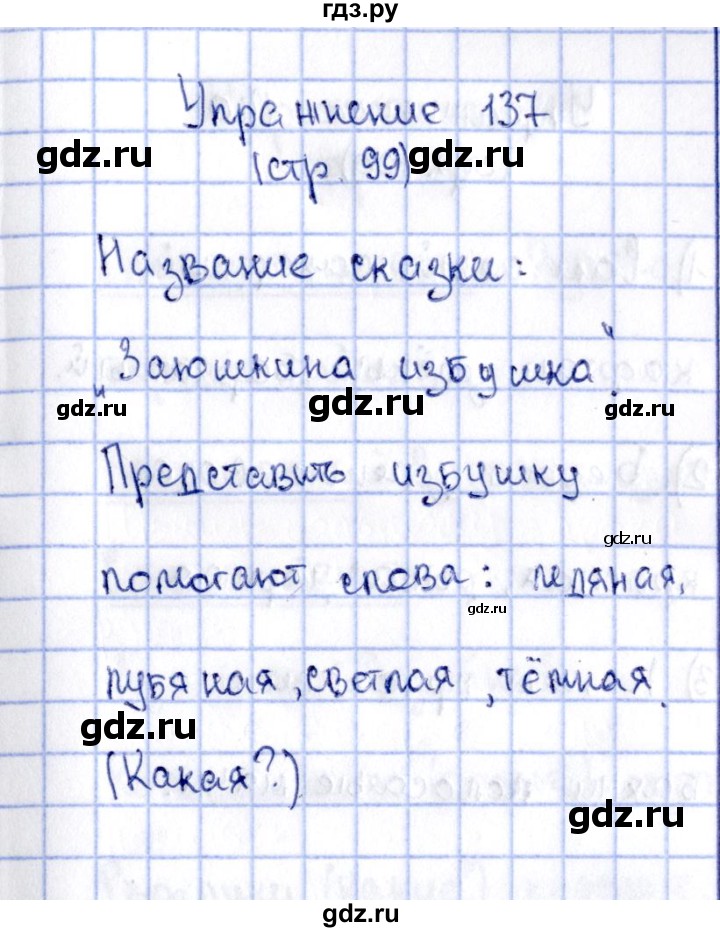 гдз.ру
Упражнение 137
gdz.ru
(стр. 99)
gdz.ru
Название сказки:
„Заюшкина избушка“.
gdz.ru
gdz.ru
gdz.ru
Представить избушку
gdz.ru
помогают слова: ледяная,
gdz.ru
лубяная, светлая, тёмная.
gdz.ru
(Какая?)
gdz.ru
gdz.ru